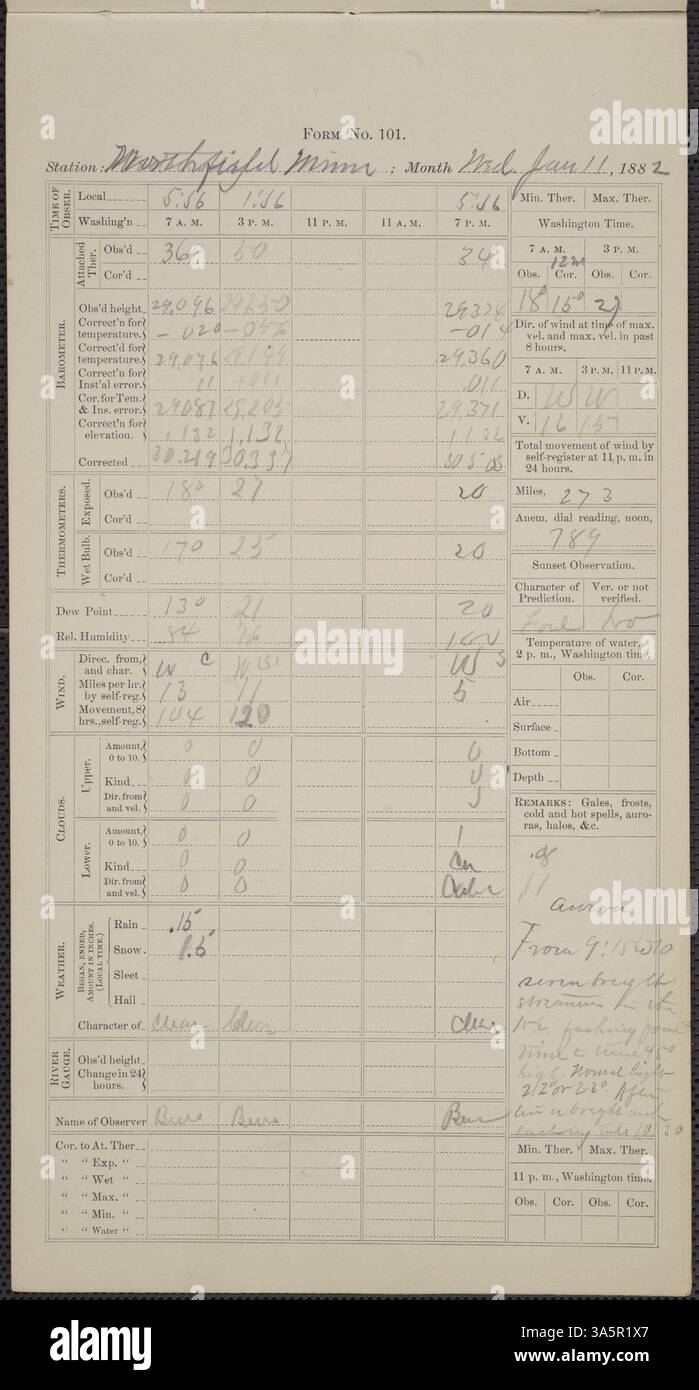 FORM No. 101.
Station: Northfield Minn ; Month Wed. Jan 11, 1882
TIME OF OBSER.
Local 5:56 1:56 5:56
Washing'n 7 A. M. 3 P. M. 11 P. M. 11 A. M. 7 P. M.
BAROMETER.
Attached Ther.
Obs'd 36 50 34
Cor'd
Obs'd height 29.096 29.250 29.374
Correct'n for temperature. -.020 -.056 -.014
Correct'd for temperature. 29.076 29.194 29.360
Correct'n for Inst'al error. 11 +.011 .011
Cor. for Tem. & Ins. error. 29.087 29.205 29.371
Correct'n for elevation. 1.132 1.132
Corrected 30.219 30.337 30.503
THERMOMETERS.
Exposed.
Obs'd 18° 27 20
Cor'd
Wet Bulb.
Obs'd 17° 25 20
Cor'd
Dew Point 13° 21 20
Rel. Humidity 84 100
WIND.
Direc. from, and char. W C W W S
Miles per hr. by self-reg. 13 11 5
Movement, 8 hrs., self-reg. 104 120
CLOUDS.
Upper.
Amount, 0 to 10. 0 0 0
Kind 0 0 0
Dir. from and vel. 0 0
Lower.
Amount, 0 to 10. 0 0 1
Kind 0 0 Cu
Dir. from and vel. 0 0 Calm
WEATHER.
BEGAN, ENDED, AMOUNT IN INCHES. (LOCAL TIME.)
Rain .15
Snow 1.5
Sleet
Hail
Character of Clear Clear Clear
RIVER GAUGE.
Obs'd height
Change in 24 hours.
Name of Observer
Cor. to At. Ther
" " Exp. "
" " Wet "
" " Max. "
" " Min. "
" " Water "
Min. Ther. Max. Ther.
Washington Time.
7 A. M. 3 P. M.
Obs. Cor. Obs. Cor.
18° 15° 27
Dir. of wind at time of max. vel. and max. vel. in past 8 hours.
7 A. M. 3 P. M. 11 P. M.
D. W W
V. 16 15
Total movement of wind by self-register at 11, p. m. in 24 hours.
Miles, 273
Anem. dial reading, noon,
789
Sunset Observation.
Character of Prediction. Ver. or not verified.
Foul No
Temperature of water, 2 p. m., Washington time.
Obs. Cor.
Air
Surface
Bottom
Depth
REMARKS: Gales, frosts, cold and hot spells, auroras, halos, &c.
11
Aurora
From 9:15 to 10
seven bright
streamers in the
high. Normal light
2/2° or 23°. After
Min. Ther. Max. Ther.
11 p. m., Washington time.
Obs. Cor. Obs. Cor.
alamy
alamy
Image ID: 3A5R1X7
www.alamy.com